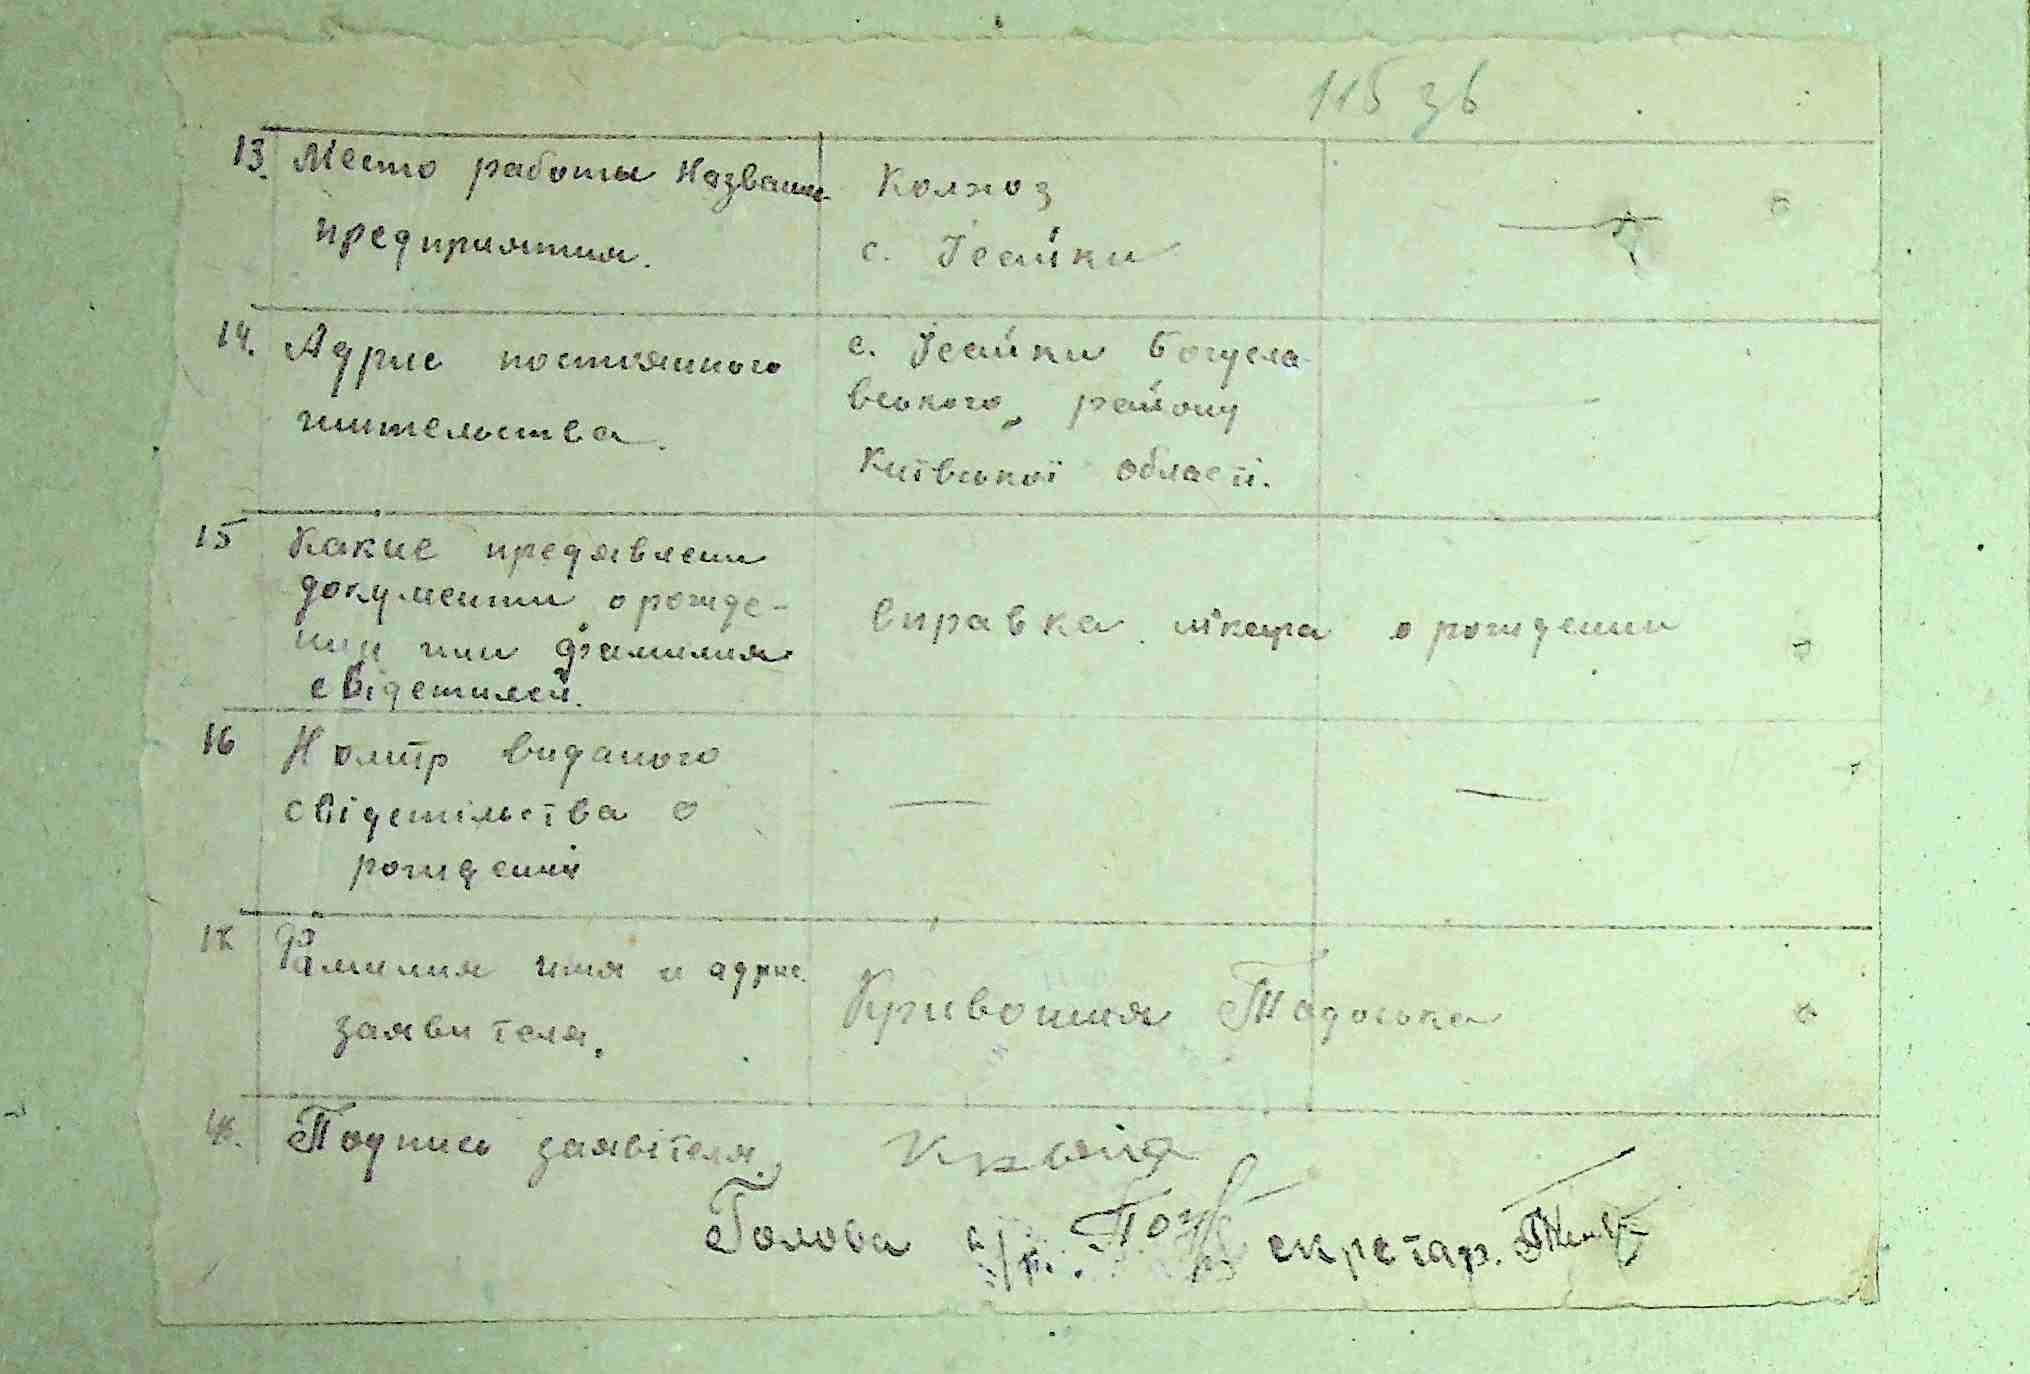 115 зв
13. Место работы Названи
Колхоз
предприятия.
с. Ісайки
14. Адрис постоянного
с. Ісайки Богусла-
вського району
жительства.
Київської області.
15 Какие предявлени
документи о рожде-
нии или фамилия
свідетилей.
Справка лікаря о рождении
16 Номир виданого
свідетільства о
рожденій
—
—
17 Фамилия имя и адрис
заявителя.
Кривошия Тадоська
18. Подпись заявітеля.
Голова с/р. секретар.